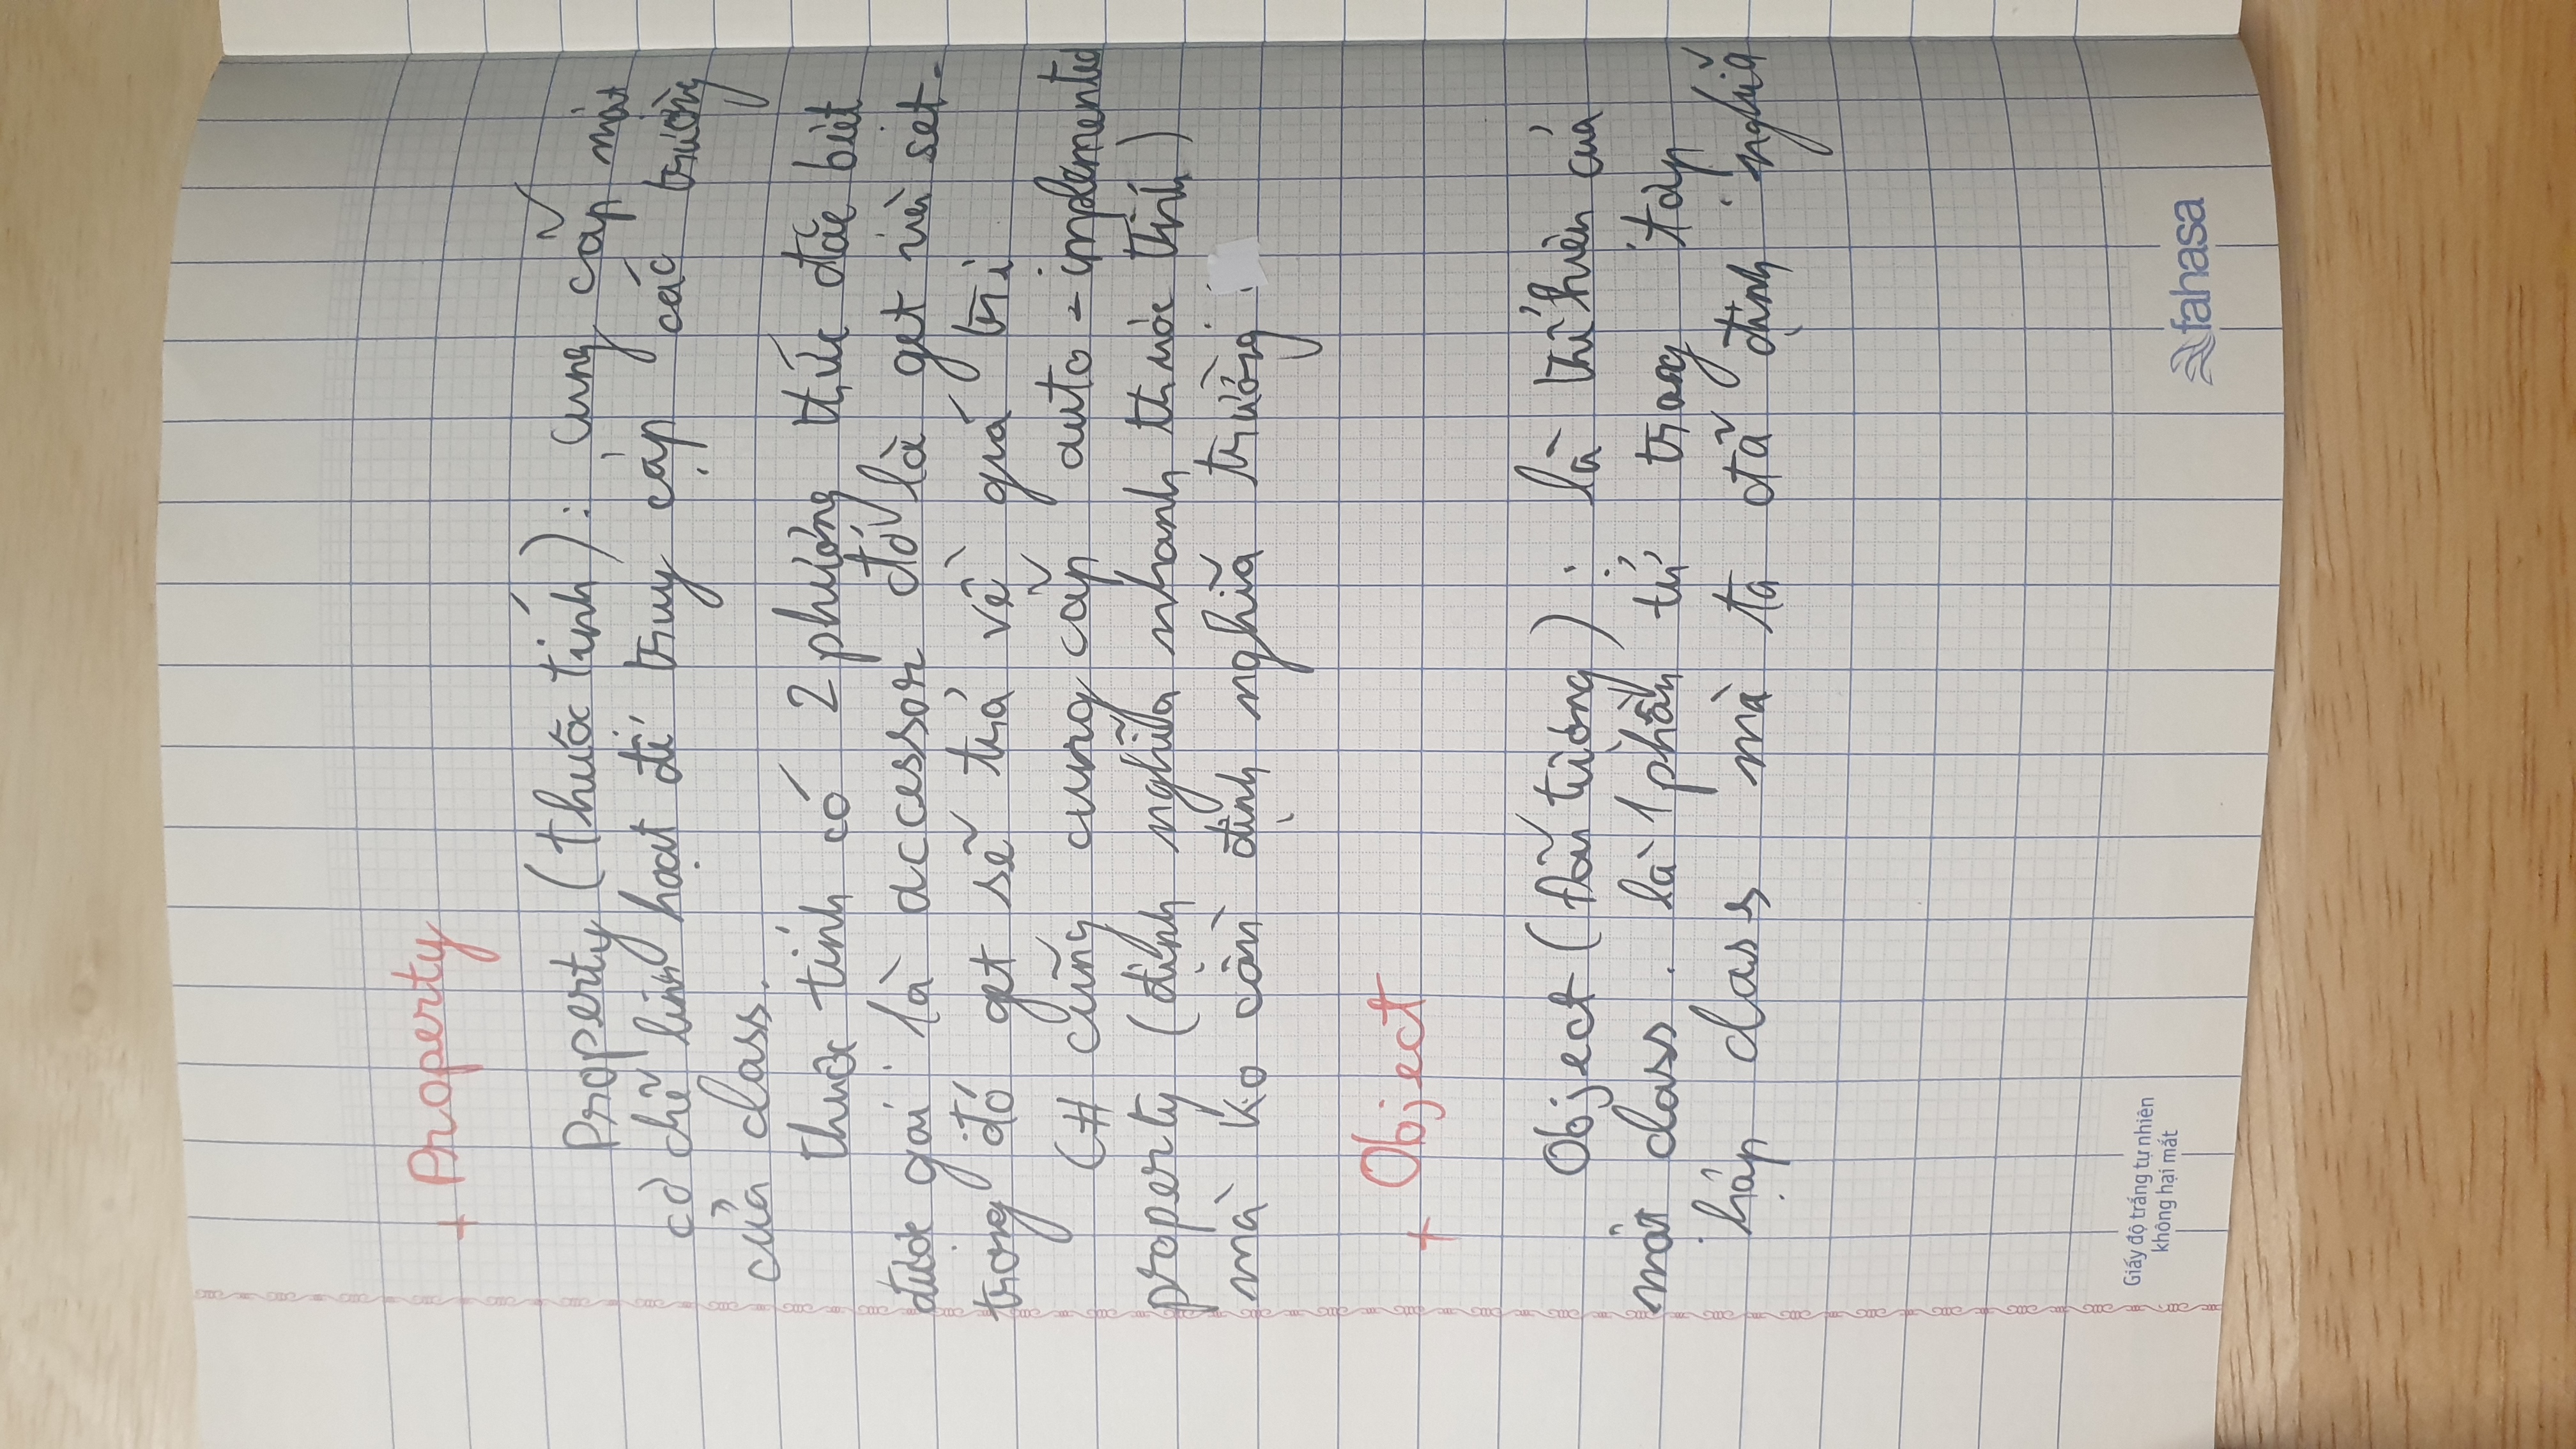 + Property
Property (thuộc tính): cung cấp một
cơ chế linh hoạt để truy cập các trường
của class.
thuộc tính có 2 phương thức đặc biệt
được gọi là accessor đó là get và set.
trong đó get sẽ trả về giá trị
C# cũng cung cấp auto-implemented
property (định nghĩa nhanh thuộc tính)
mà ko cần định nghĩa trường
+ Object
Object (Đối tượng): là thể hiện của
một class. là 1 phần tử trong tập
hợp class mà ta đã định nghĩa
Giấy độ trắng tự nhiên
không hại mắt
fahasa